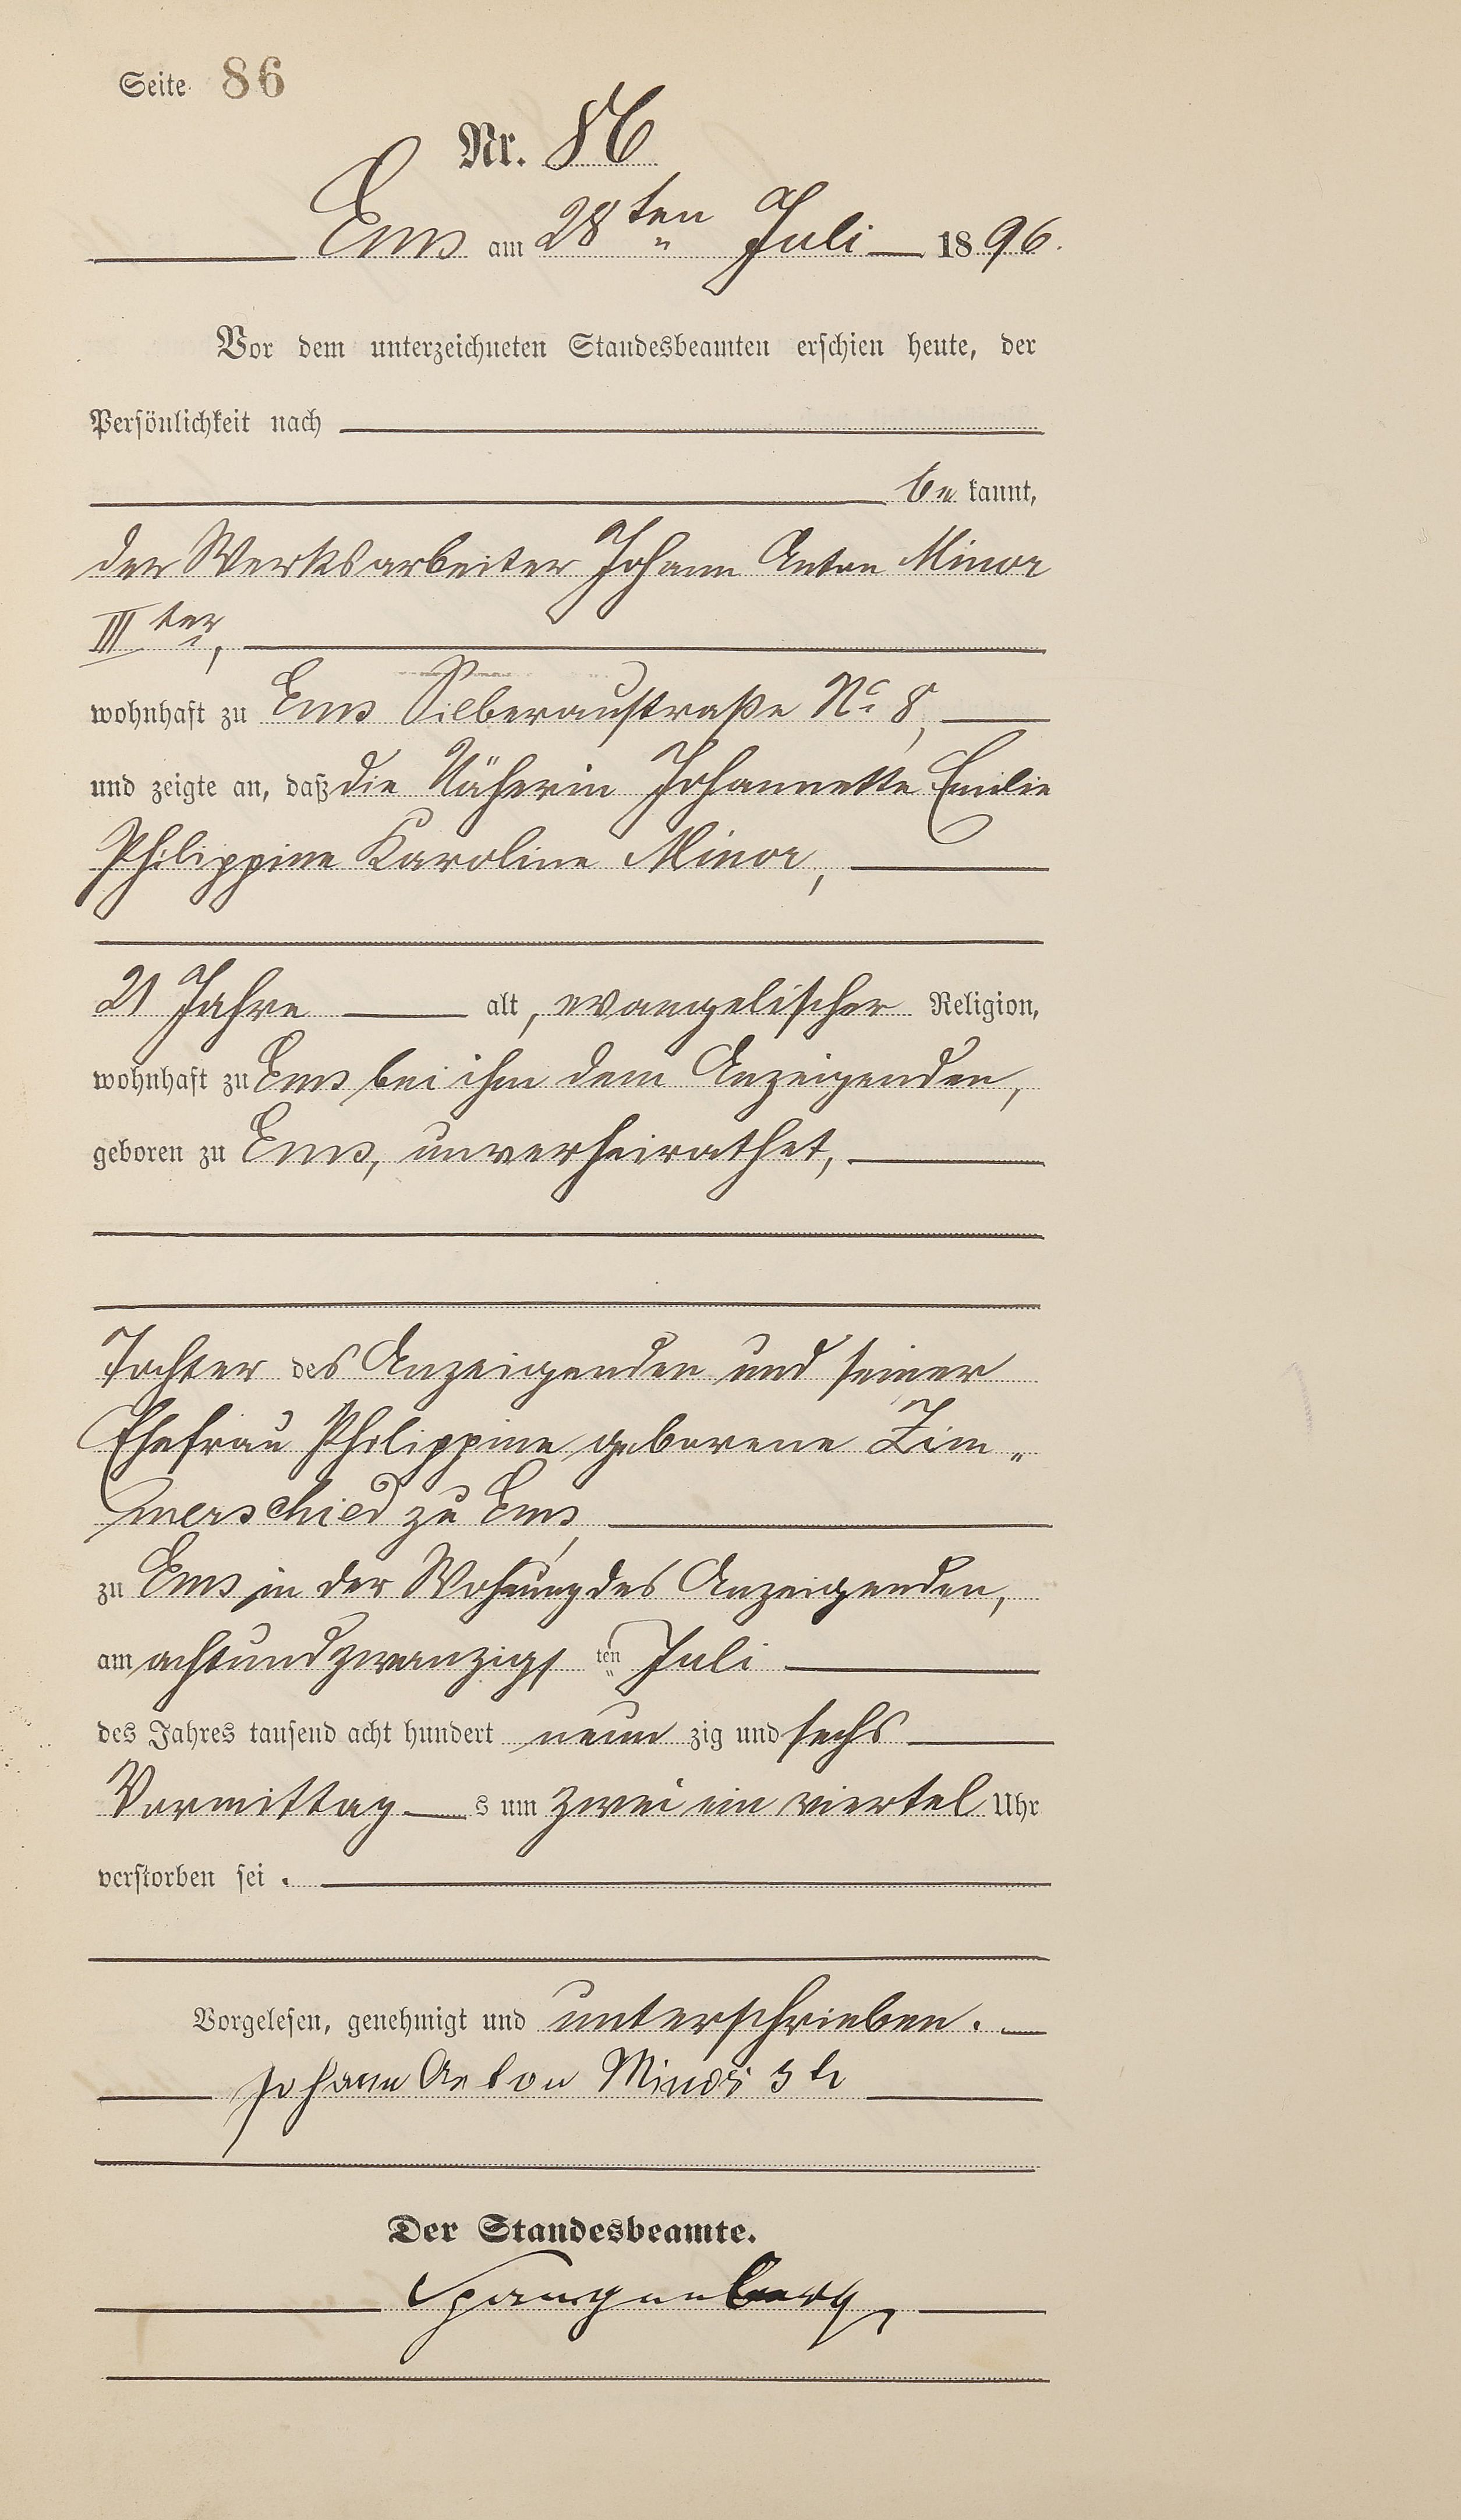 Seite 86
Nr. 86
Ems am 28ten Juli 1896.
Vor dem unterzeichneten Standesbeamten erschien heute, der
Persönlichkeit nach
be kannt,
der Werksarbeiter Johann Anton Minor
IIIter,
wohnhaft zu Ems Silberaustraße No 8,
und zeigte an, daß die Näherin Johannette Emilie
Philippine Karoline Minor,
21 Jahre alt, evangelischer Religion,
wohnhaft zu Ems bei ihm dem Anzeigenden,
geboren zu Ems, unverheirathet,
Tochter des Anzeigenden und seiner
Ehefrau Philippine geborene Zim„
merschied zu Ems,
zu Ems in der Wohnung des Anzeigenden,
am achtundzwanzigs ten Juli
des Jahres tausend acht hundert neun zig und sechs
Vormittag s um zwei ein viertel Uhr
verstorben sei.
Vorgelesen, genehmigt und unterschrieben.
Johann Anton Minor 3te
Der Standesbeamte.
Spangenberg